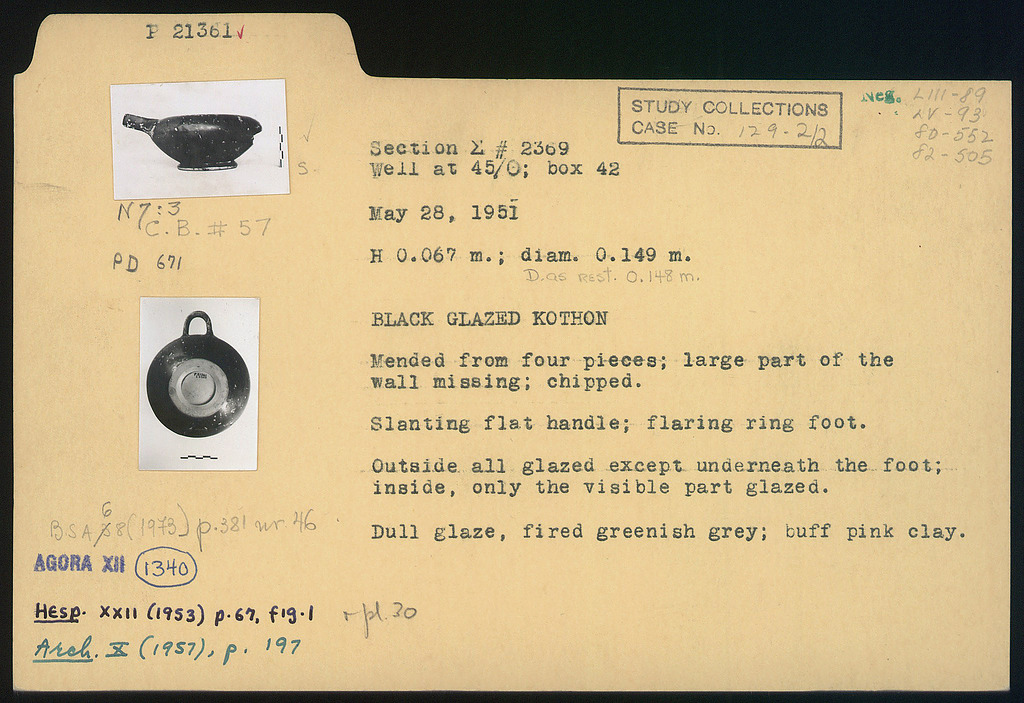 P 21361✓
STUDY COLLECTIONS
CASE No. 129-2/2
Neg. LIII-89
LV-93
80-552
82-505
Section Σ # 2369
Well at 45/O; box 42
S.
May 28, 1951
N 7:3
C.B. # 57
PD 671
H 0.067 m.; diam. 0.149 m.
D. as rest. 0.148 m.
BLACK GLAZED KOTHON
Mended from four pieces; large part of the
wall missing; chipped.
Slanting flat handle; flaring ring foot.
Outside all glazed except underneath the foot;
inside, only the visible part glazed.
Dull glaze, fired greenish grey; buff pink clay.
BSA 68 (1973) p.381 nr 46
AGORA XII 1340
Hesp. XXII (1953) p.67, fig.1
pl. 30
Arch. X (1957), p. 197